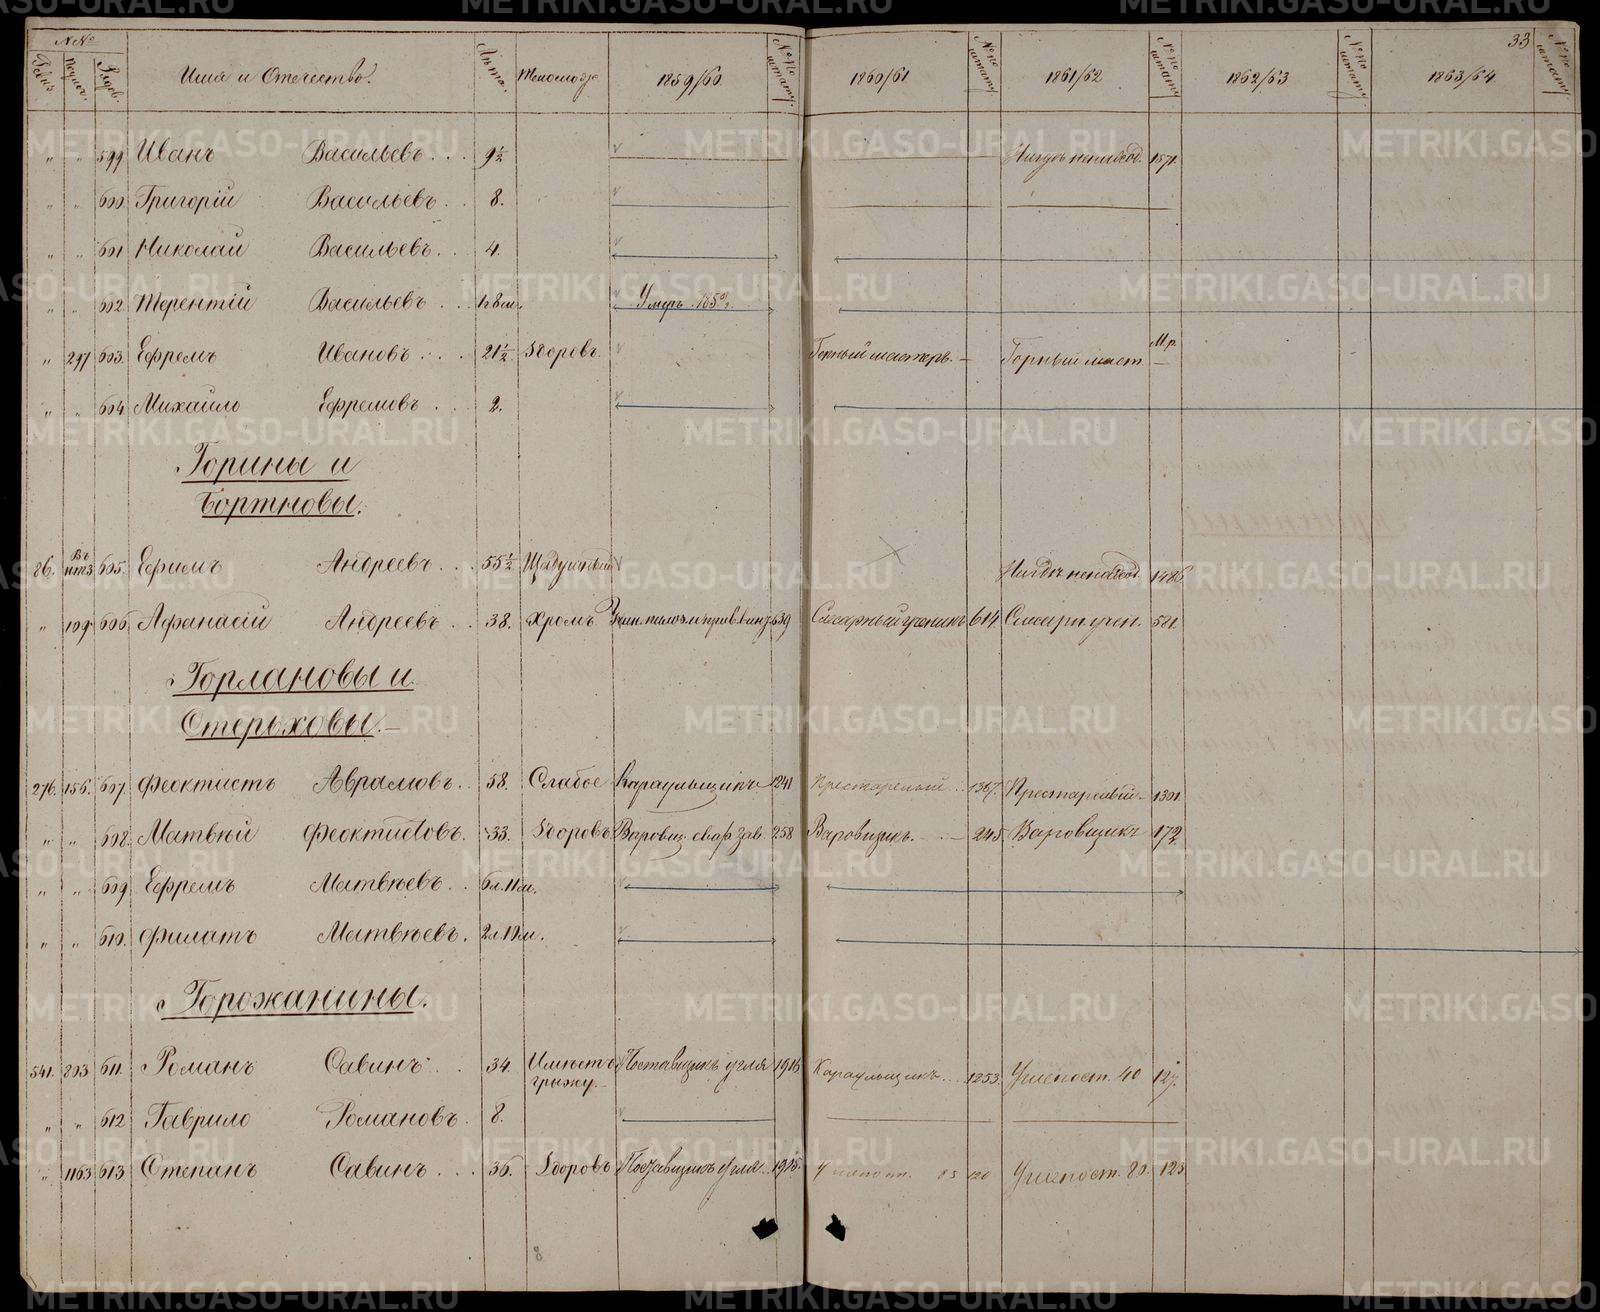 33
№№
Имя и Отчество.
Лѣта.
Телосл.
1859/60
№ по штату.
1860/61
№ по штату
1861/62
№ по штату
1862/63
№ по штату
1863/64
№ по штату
" " 599 Иванъ Васильевъ. 9½ 1571.
" " 600. Григорій Васильевъ. 8.
" " 601 Николай Васильевъ. 4.
" " 602. Терентій Васильевъ. 1г 8м. Умеръ
" 297 603. Ефремъ Ивановъ. 21½ Здоровъ. Горный мастеръ. — Горный маст. —
" " 604 Михайло Ефремовъ. 2.
Горины и
Бортновы.
86. 605. Ефимъ Андреевъ. 55½ 1486
" 109. 606. Афанасій Андреевъ. 38. Хромъ 639 Слесарный ученикъ 614 Слесарн. учен. 581.
Горлановы и
Стерьховы.
276. 156. 607. Феоктистъ Аврамовъ. 58. Слабое Караульщикъ 1241 Престарелый 1367. Престарелый 1301
" " 608. Матвѣй Феоктистовъ. 33. Здоровъ 258 Варовщикъ. 245. Варовщикъ 172.
" " 609 Ефремъ Матвѣевъ. 6л. 11м.
" " 610. Филатъ Матвѣевъ. 2л 10м.
Горожанины.
541. 803 611. Романъ Савинъ. 34. Имѣетъ грыжу. Поставщикъ угля 1916 Караульщикъ. 1253. Углепост. 40 127.
" " 612 Гаврило Романовъ. 8.
" 1163 613 Степанъ Савинъ. 36. Здоровъ Поставщикъ угля 1915. Углепост. 85 120 Углепост. 80. 125
8
METRIKI.GASO-URAL.RU